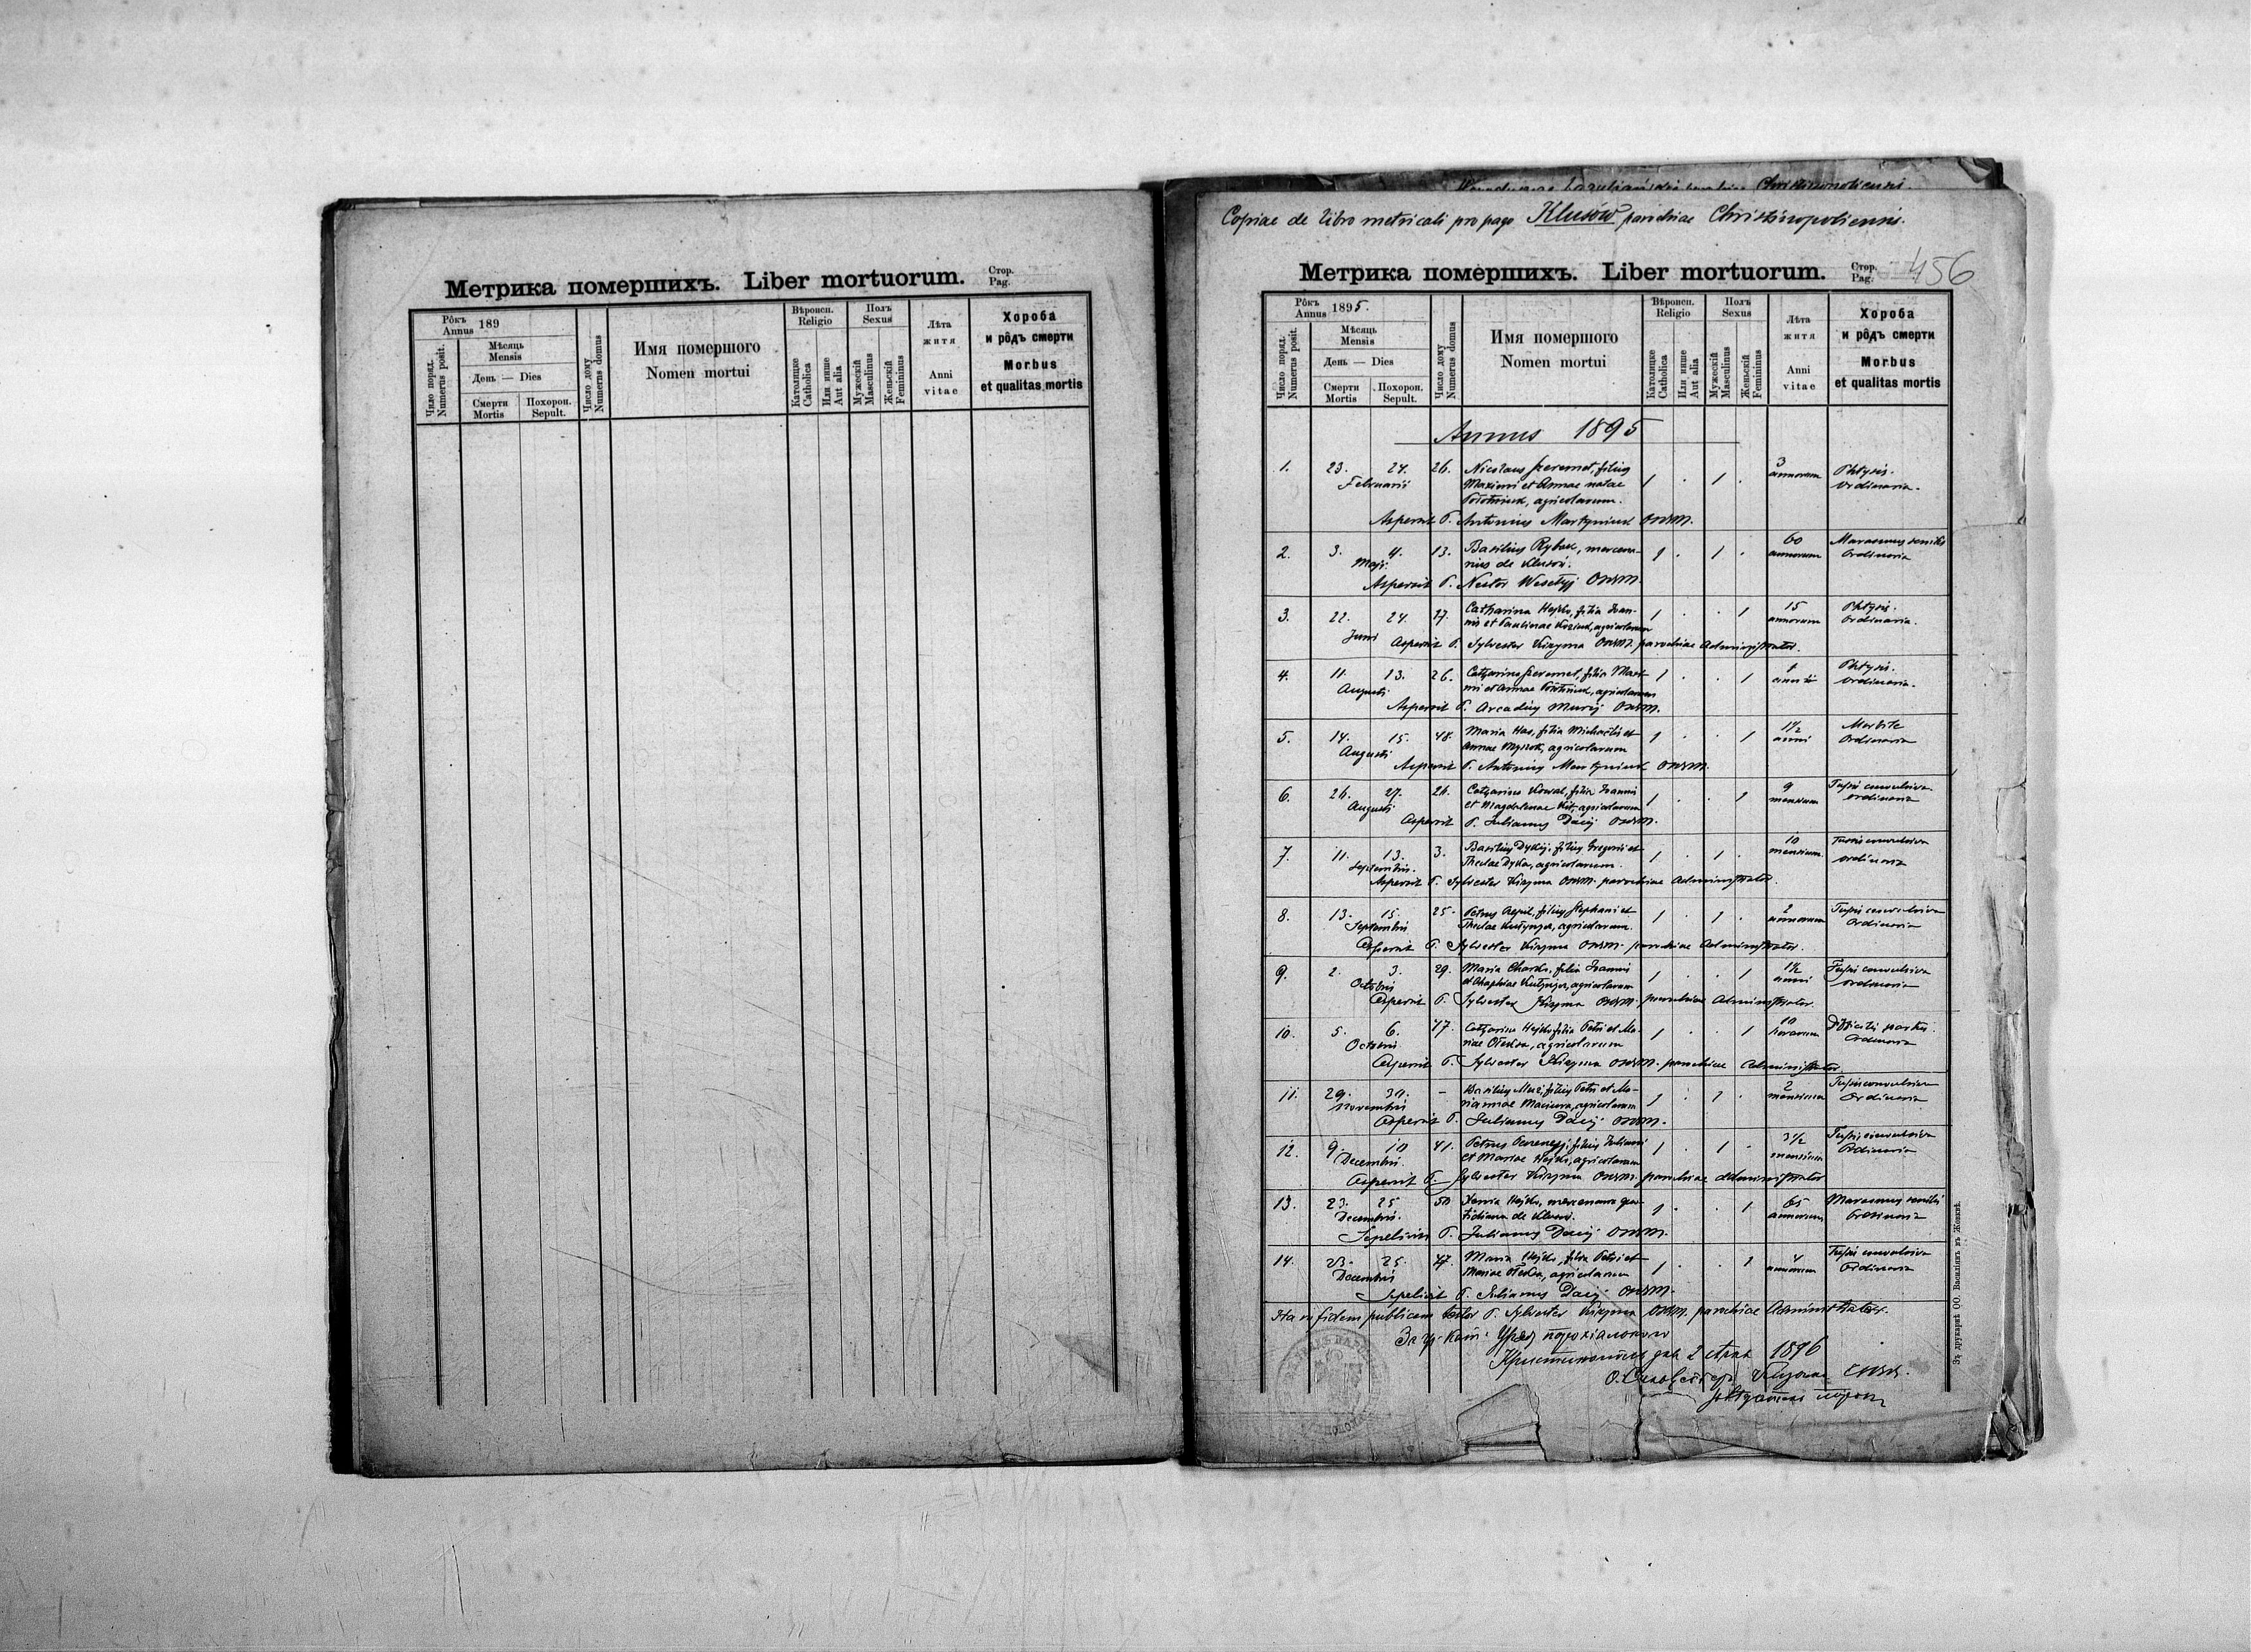 Метрика помершихъ. Liber mortuorum.
Стор.
Pag.
Рôкъ
Annus 189
Чило поряд.
Numerus posit.
Мѣсяць
Mensis
День — Dies
Смерти
Mortis
Похорон.
Sepult.
Число дому
Numerus domus
Имя помершого
Nomen mortui
Вѣроисп.
Religio
Католицке
Catholica
Или инше
Aut alia
Полъ
Sexus
Мужескій
Masculinus
Женьскій
Femininus
Лѣта
житя
Anni
vitae
Хороба
и рôдъ смерти
Morbus
et qualitas mortis
Christinopoliensi.
Copiae de libro metricali pro pago Klusów parochiae Christinopoliensis.
Метрика померших​ъ. Liber mortuorum.
Стор.
Pag.
456
Рôкъ
Annus 1895.
Число поряд.
Numerus posit.
Мѣсяць
Mensis
День — Dies
Смерти
Mortis
Похорон.
Sepult.
Число дому
Numerus domus
Имя помершого
Nomen mortui
Вѣроисп.
Religio
Католицке
Catholica
Или инше
Aut alia
Полъ
Sexus
Мужескій
Masculinus
Женьскій
Femininus
Лѣта
житя
Anni
vitae
Хороба
и рôдъ смерти
Morbus
et qualitas mortis
Annus 1895
1. 23. 24. 26. Nicolaus Szeremet, filius 3 Phtysis.
Februarii Maximi et Annae natae 1 . 1 . annorum Ordinaria.
agricolarum.
Aspersit P. Antonius Martyniuk OSBM.
2. 3. 4. 13. Basilius Rybak, mercena- 1 . 1 . 60 Marasmus senilis
Maji. rius de Klusów. annorum Ordinaria
Aspersit P. Nestor Wesełyj OSBM.
3. 22. 24. 47. Catharina Hejko, filia Joan- 1 . . 1 15 Phtysis.
Junii nis et Paulinae Koziuk, agricolarum annorum Ordinaria.
Aspersit P. Sylvester Kizyma OSBM. parochiae Administrator.
4. 11. 13. 26. Catharina Szeremet, filia Maxi- 1 . . 1 1 Phtysis.
Augusti mi et Annae agricolarum anni Ordinaria.
Aspersit P. Arcadius OSBM.
5. 14. 15. 48. Maria Has, filia Michaelis et 1 . . 1 1 1/2 Morbile
Augusti Annae agricolarum anni Ordinaria
Aspersit P. Antonius Martyniuk OSBM.
6. 26. 27. 24. Catharina Kowal, filia Joannis 1 . . 1 9 Tussis convulsiva
Augusti et Magdalenae Kit, agricolarum mensium ordinaria
Aspersit P. Julianus Dacij OSBM.
7. 11. 13. 3. Basilius Dykij, filius Gregorii et 1 . 1 . 10 Tussis convulsiva
Septembris. Theclae Dyka, agricolarum. mensium. ordinaria
Aspersit P. Sylvester Kizyma OSBM. parochiae Administrator.
8. 13. 15. 25. Petrus filius Stephani et 1 . 1 . 2 Tussis convulsiva
Septembris Theclae agricolarum. annorum Ordinaria
Aspersit P. Sylvester Kizyma OSBM. parochiae Administrator.
9. 2. 3. 29. Maria filia Joannis 1 . . 1 1 1/2 Tussis convulsiva
Octobris et agricolarum anni ordinaria
Aspersit P. Sylvester Kizyma OSBM. parochiae Administrator.
10. 5. 6. 47. Catharina Hejko filia Petri et Ma- 1 . . 1 10 Difficilis partus.
Octobris riae agricolarum horarum Ordinaria
Aspersit P. Sylvester Kizyma OSBM. parochiae Administrator
11. 29. 30. - Basilius filius Petri et Ma- 1 . 1 . 2 Tussis convulsiva
Novembris riannae agricolarum mensium Ordinaria
Aspersit P. Julianus Dacij OSBM.
12. 9. 10 41. Petrus filius Juliani 1 . 1 . 3 1/2 Tussis convulsiva
Decembris. et Mariae Hejko, agricolarum mensium Ordinaria
Aspersit P. Sylvester Kizyma OSBM. parochiae Administrator
13. 23. 25 50 Xenia Hejko, mercenaria quo- 1 . . 1 65 Marasmus senilis
Decembris. tidiana de Klusów. annorum Ordinaria
Sepelivit P. Julianus Dacij OSBM.
14. 23. 25. 47. Maria Hejko, filia Petri et 1 . . 1 4 Tussis convulsiva
Decembris Mariae agricolarum annorum Ordinaria
Sepelivit P. Julianus Dacij OSBM.
Ita in fidem publicam testor P. Sylvester Kizyma OSBM. parochiae Administrator.
За гр. кат. Уряд парохіального
Кристинополь дня 2 1896
О. Сильвестеръ Кизима ЧСВВ.
Зъ друкарнѣ ОО. Василіянъ въ Жовквѣ.